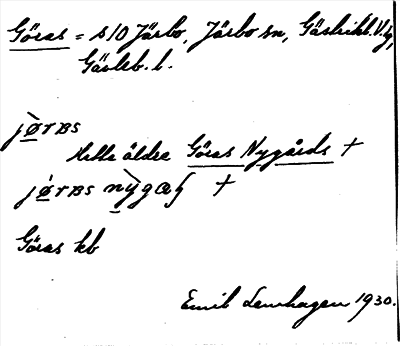 Göras = s/0 Järbo, Järbo sn, Gästrikl. V. tg,
Gävleb. l.
jø̀rᴃs
Hette äldre Göras Nygårds +
jø̀rᴃs
+
Göras kb
Emil Lenhagen 1930.